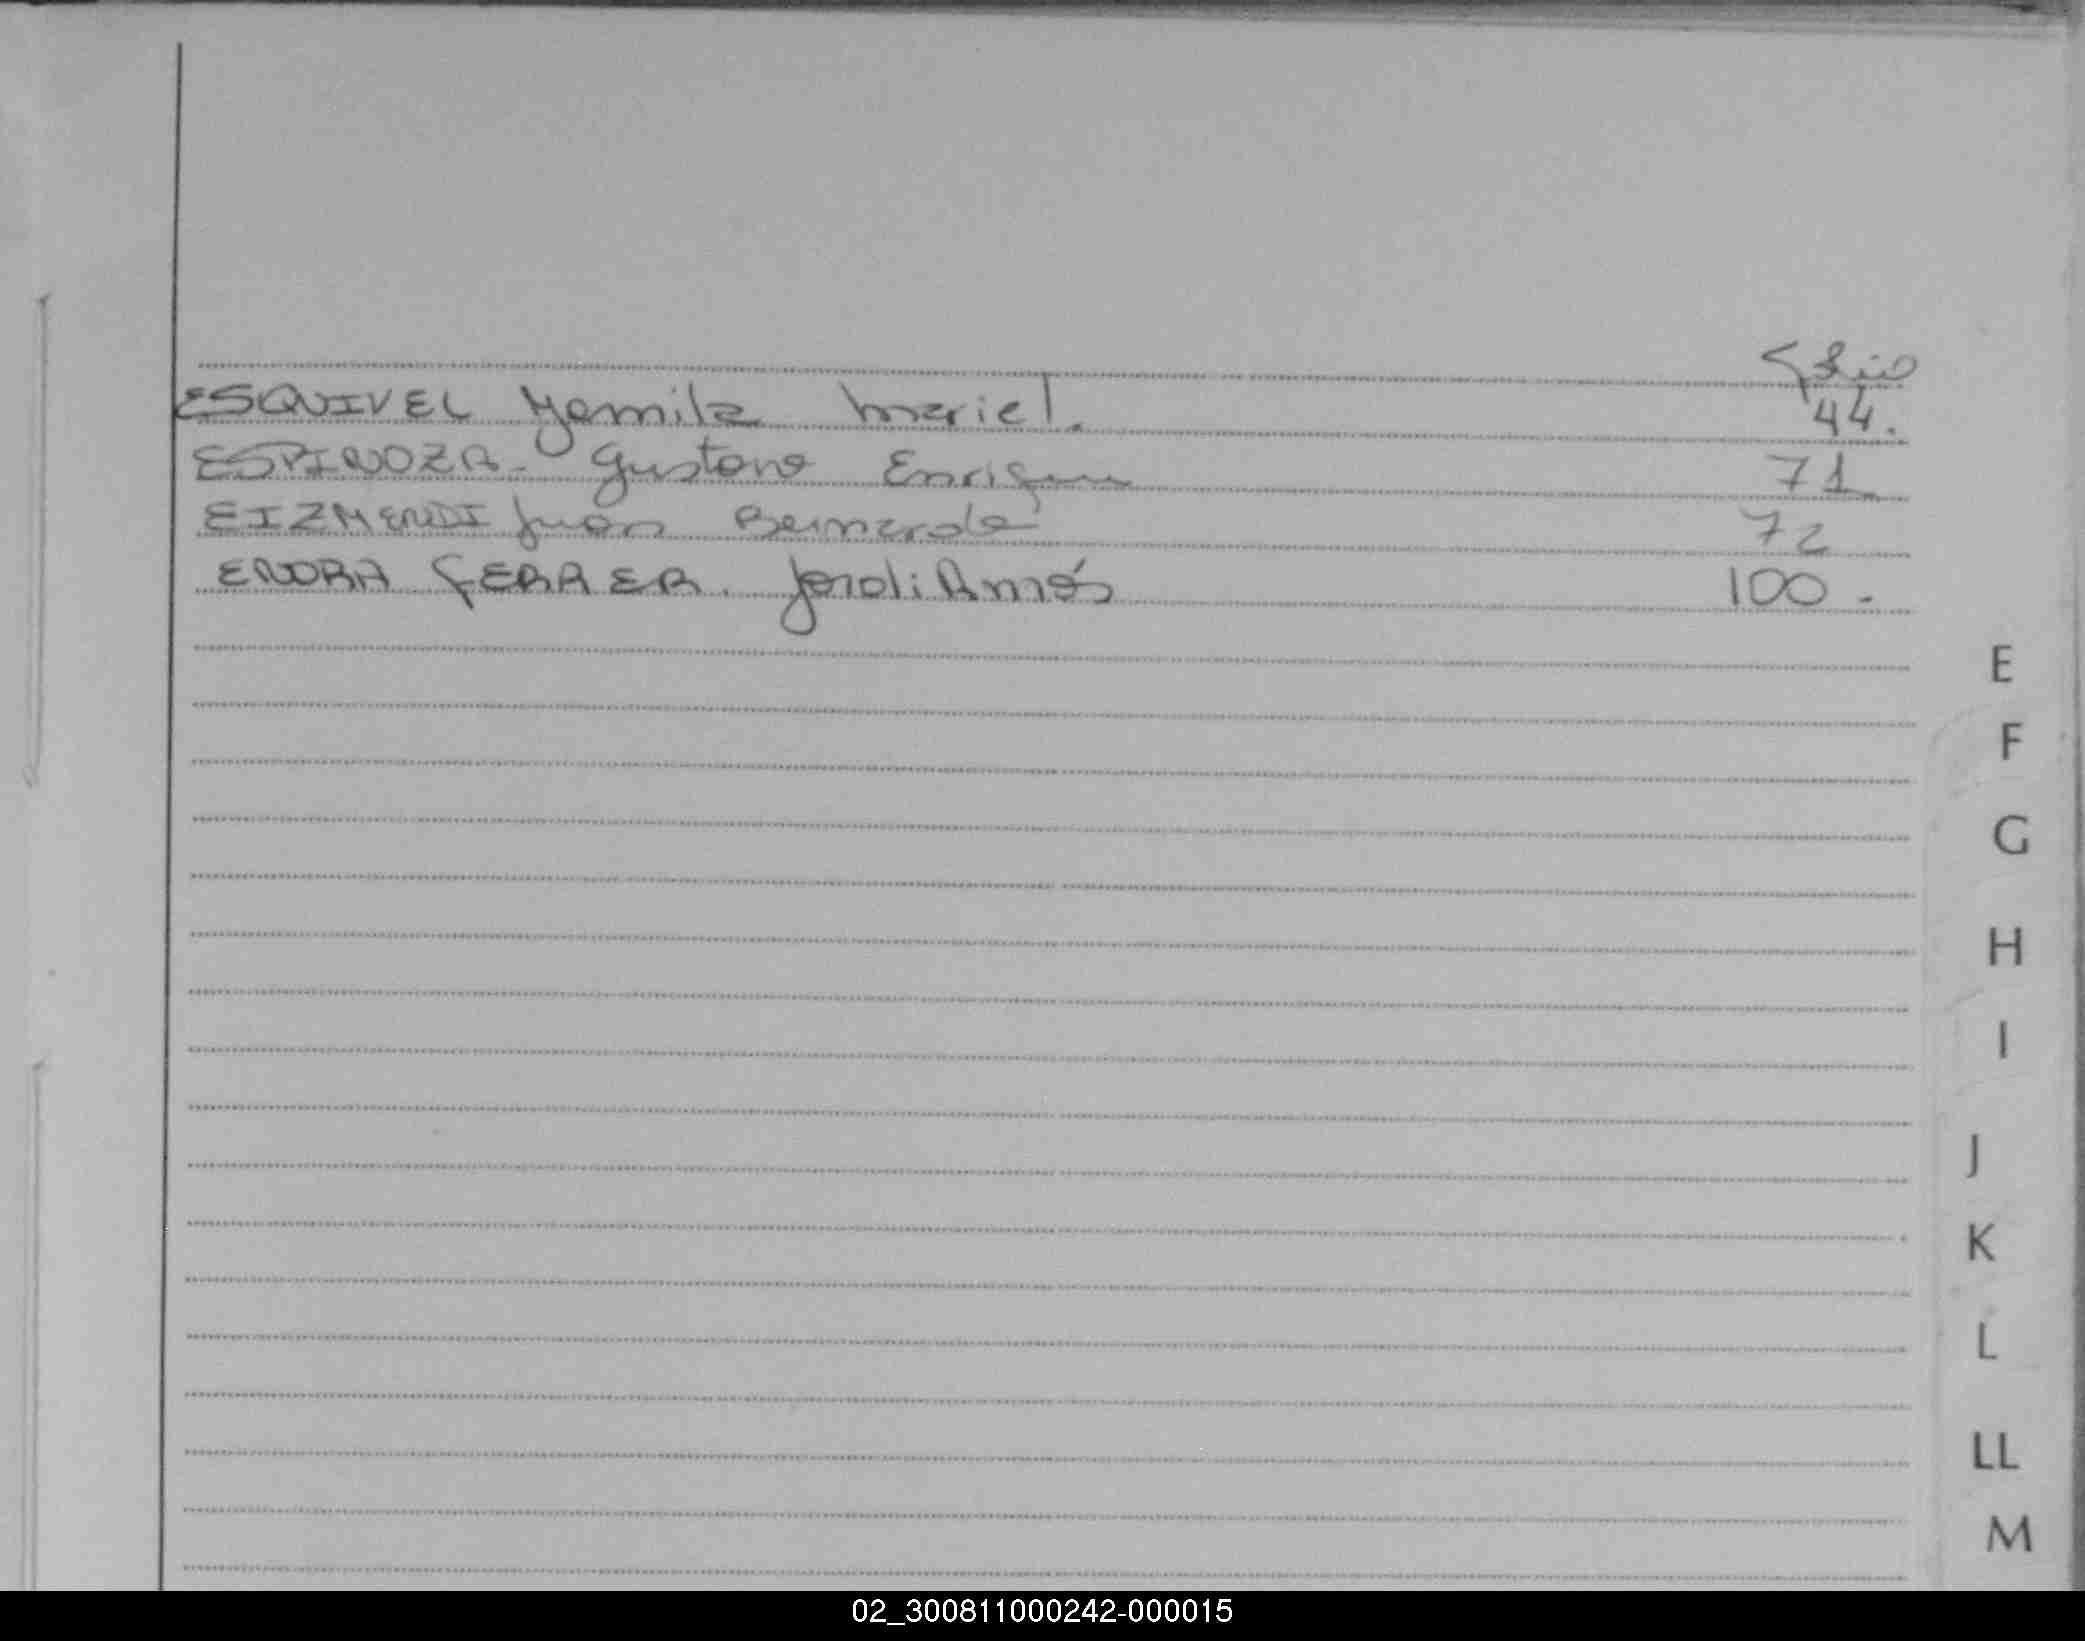 Folio
ESQUIVEL Yamila Mariel. 44.
ESPINOZA. Gustavo Enrique 71
EIZMENDI Juan Bernardo 72
ENDRA FERRER. Jordi Amós 100.
E
F
G
H
I
J
K
L
LL
M
02_300811000242-000015